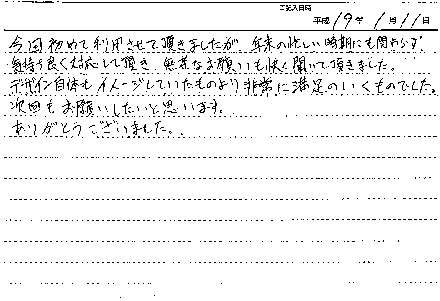 ご記入日時
平成 19 年 1 月 11 日
今回初めて利用させて頂きましたが、年末の忙しい時期にも関わらず
気持ち良く対応して頂き、無茶なお願いも快く聞いて頂きました。
デザイン自体もイメージしていたものより非常に満足のいくものでした。
次回もお願いしたいと思います。
ありがとうございました。